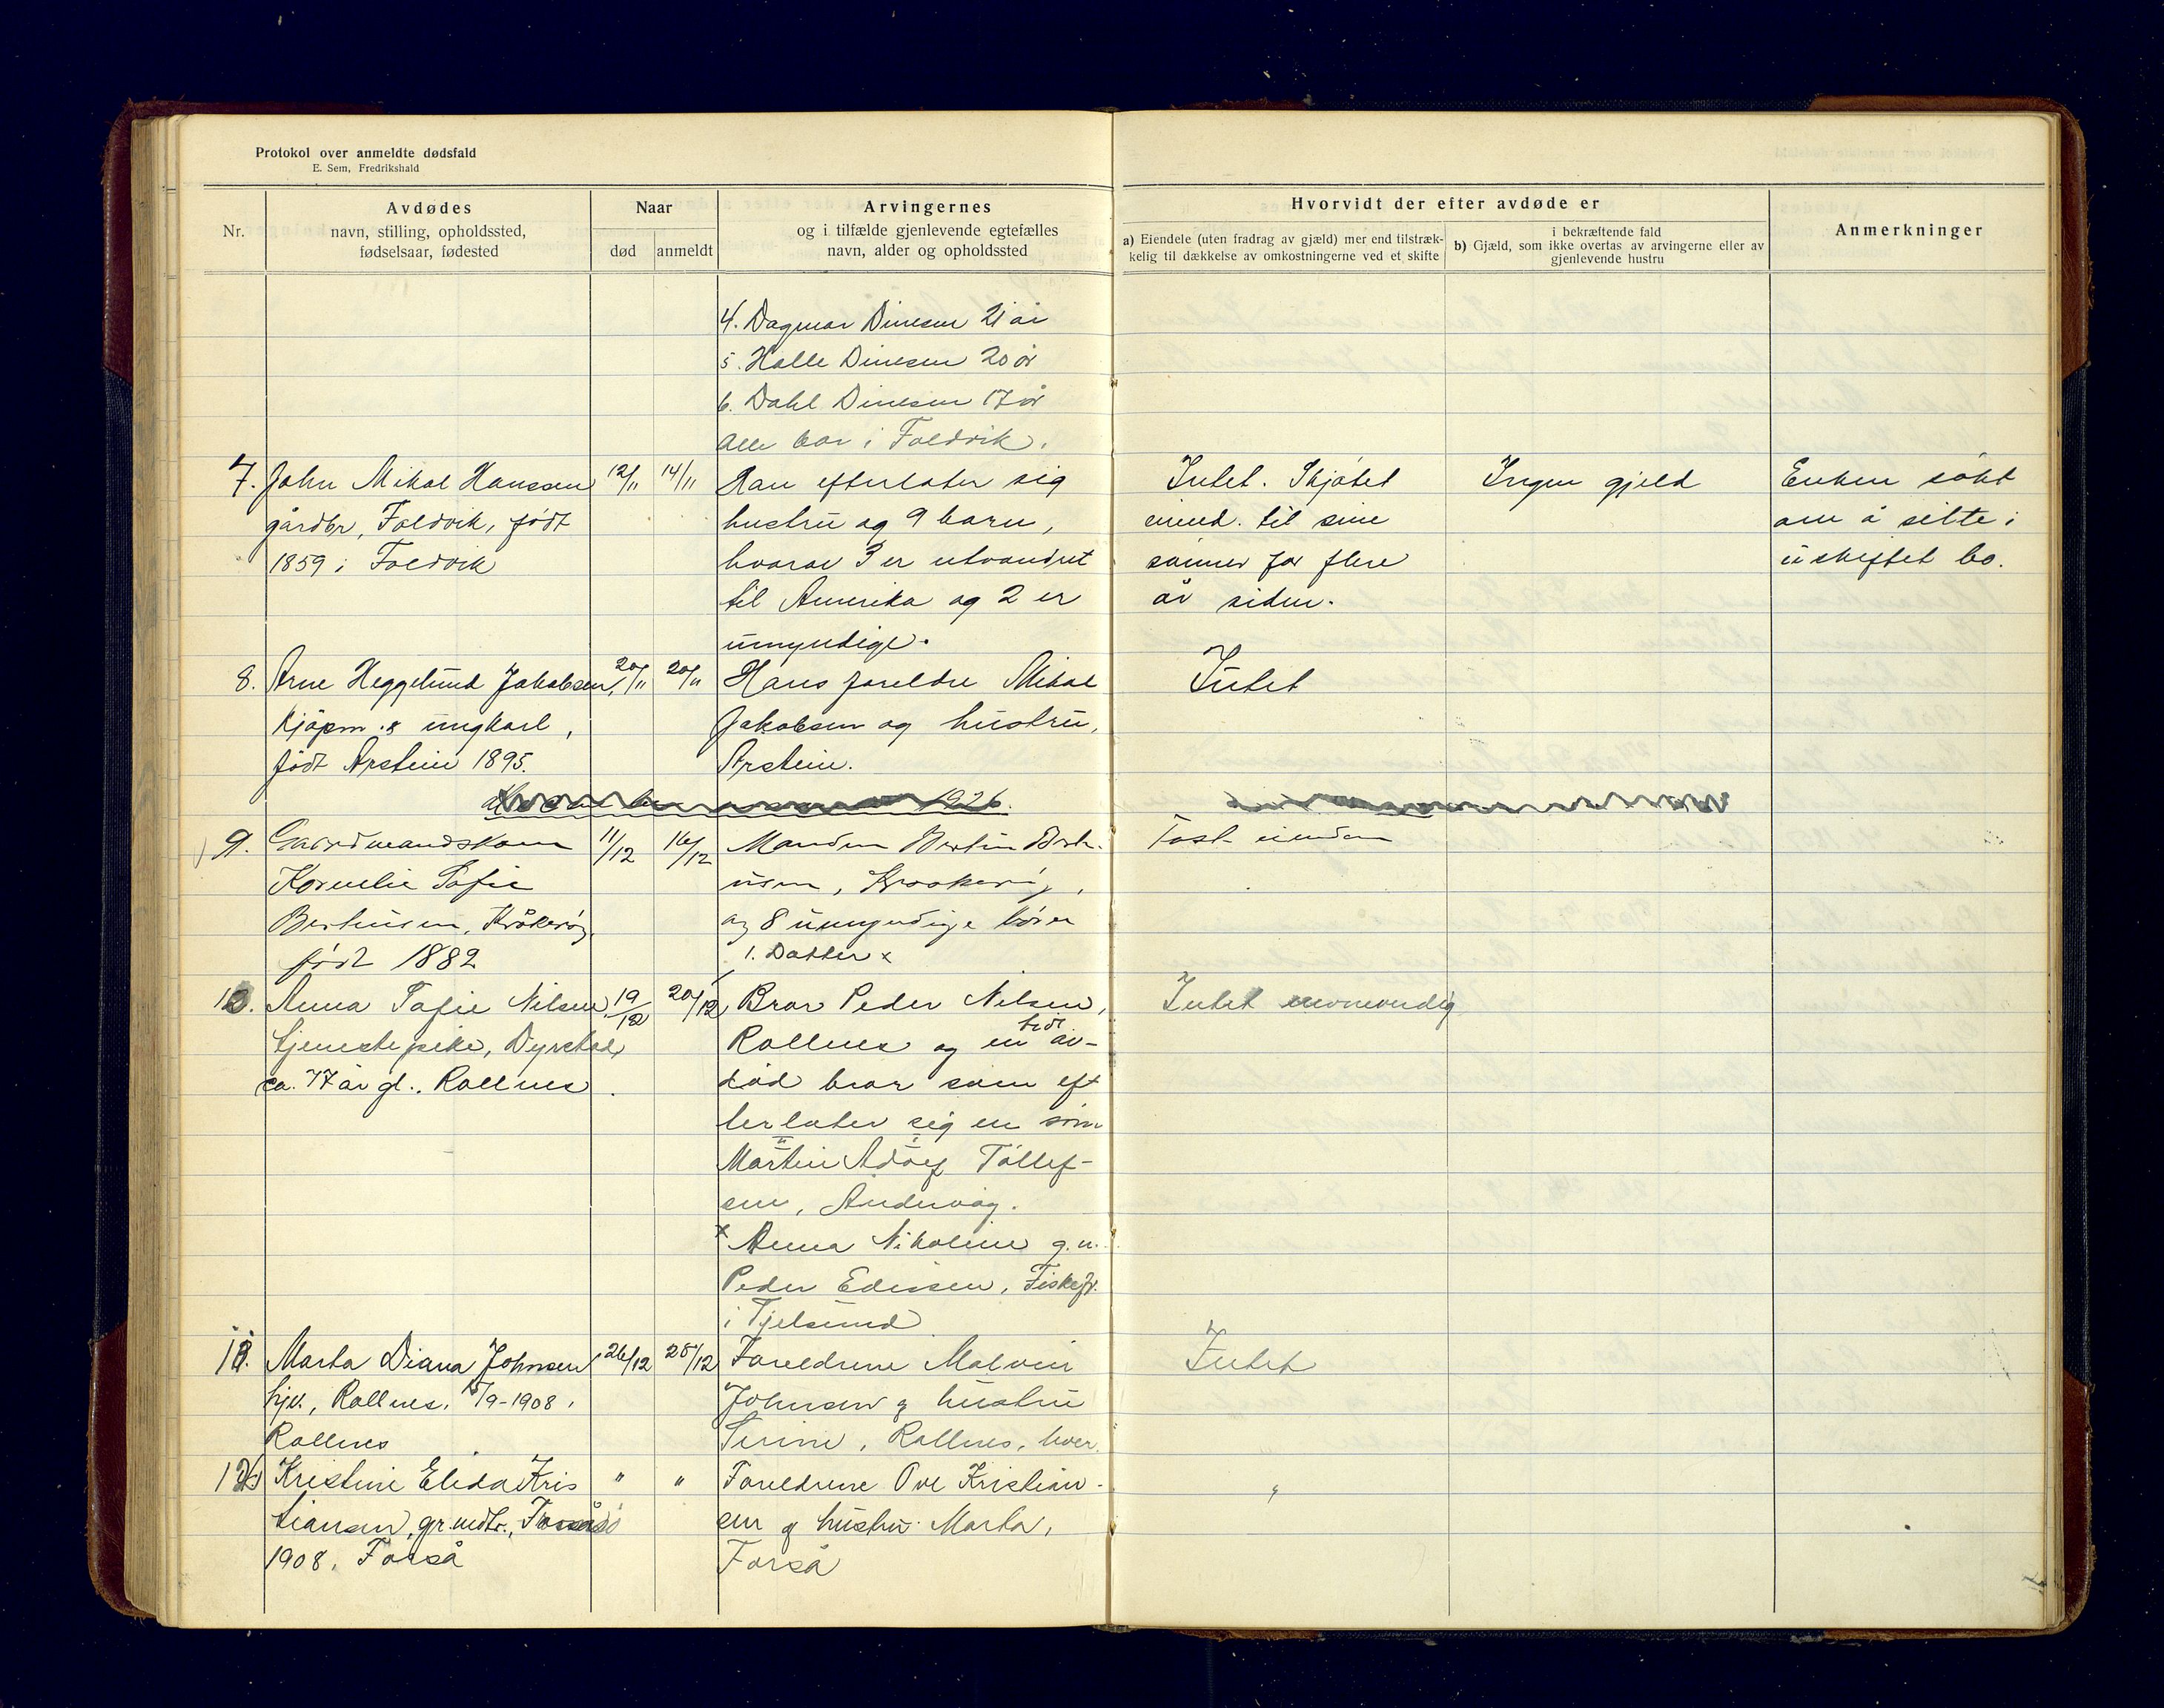 Protokol over anmeldte dødsfald
E. Sem, Fredrikshald
Nr.
Avdødes
navn, stilling, opholdssted,
fødselsaar, fødested
Naar
død
anmeldt
Arvingernes
og i tilfælde gjenlevende egtefælles
navn, alder og opholdssted
Hvorvidt der efter avdøde er
a) Eiendele (uten fradrag av gjæld) mer end tilstræk-
kelig til dækkelse av omkostningerne ved et skifte
i bekræftende fald
b) Gjæld, som ikke overtas av arvingerne eller av
gjenlevende hustru
Anmerkninger
4. Dagmar Dinesen 21 år
5. Halle Dinesen 20 år
6. Dahl Dinesen 17 år
Alle bor i Foldvik.
7. John Mikal Hanssen
gårdbr, Foldvik, født
1859 i Foldvik
12/11
14/11
Han efterlater sig
hustru og 9 barn,
hvorav 3 er utvandret
til Amerika og 2 er
umyndige.
Intet. Skjøtet
eiend. til sine
sønner for flere
år siden.
Ingen gjeld
Enken søkt
om å sitte i
uskiftet bo.
8. Arne Heggelund Jakobsen,
kjøpm. & ungkarl,
født Årstein 1895.
20/11
20/11
Hans foreldre Mikal
Jakobsen og hustru,
Årstein.
Intet
1926.
9. Gaardmandskone
Kornelie Sofie
Berthinsen, Kråkerøy,
født 1882
11/12
16/12
Manden Bertin Bert-
insen,
og 8 umyndige børn
1. Datter x
Fast eiendom
10. Anna Sofie Nilsen,
tjenestepike, Dyrstad,
ca. 77 år gl. Rollnes.
19/12
20/12
Bror Peder Nilsen,
Rollnes og en tidl av-
død bror som eft
terlater sig en sønn
Martin Adolf Tollef-
sen, Andervåg.
x Anna Nikoline g.m.
Peder Edissen, Fiskefj.
i Tjelsund
Intet nevneverdig
11. Marta Diana Johnsen
hjv., Rollnes, /9-1908,
Rollnes
26/12
28/12
Foreldrene Malvin
Johnsen & hustru
Serine, Rollnes, hver.
Intet
12. Kristine Elida Kris
tiansen, gr.mdtr.,
1908, Forså
"
"
Foreldrene Ove Kristian-
sen & hustru Marta,
Forså
"